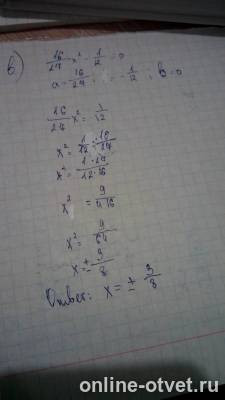 в) 16/27 x² - 1/12 = 0
a = 16/27 ; c = -1/12 ; b = 0
16/27 x² = 1/12
x² = 1/12 : 16/27
x² = 1·27/12·16
x² = 9/4·16
x² = 9/64
x = ± 3/8
Ответ: x = ± 3/8
online-otvet.ru